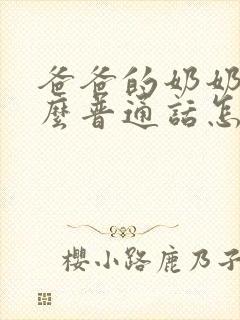 爸爸的奶奶
麼普通話怎
櫻小路鹿乃子